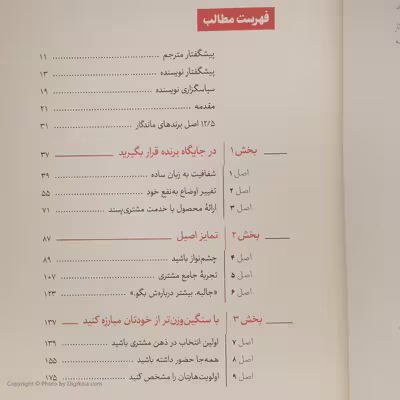 فهرست مطالب
پیشگفتار مترجم ........ ۱۱
پیشگفتار نویسنده ........ ۱۳
سپاسگزاری نویسنده ........ ۱۹
مقدمه ........ ۲۱
۱۲/۵ اصل برندهای ماندگار ........ ۳۱
بخش ۱ در جایگاه برنده قرار بگیرید ۳۷
اصل ۱ شفافیت به زبان ساده ........ ۳۹
اصل ۲ تغییر اوضاع به‌نفع خود ........ ۵۵
اصل ۳ ارائهٔ محصول یا خدمت مشتری‌پسند ........ ۷۱
بخش ۲ تمایز اصیل ۸۷
اصل ۴ چشم‌نواز باشید ........ ۸۹
اصل ۵ تجربهٔ جامع مشتری ........ ۱۰۷
اصل ۶ «جالبه. بیشتر درباره‌ش بگو.» ........ ۱۲۳
بخش ۳ با سنگین‌وزن‌تر از خودتان مبارزه کنید ۱۳۷
اصل ۷ اولین انتخاب در ذهن مشتری باشید ........ ۱۳۹
اصل ۸ همه‌جا حضور داشته باشید ........ ۱۵۵
اصل ۹ اولویت‌هایتان را مشخص کنید ........ ۱۷۵
Copyright © Photo by Digikala.com